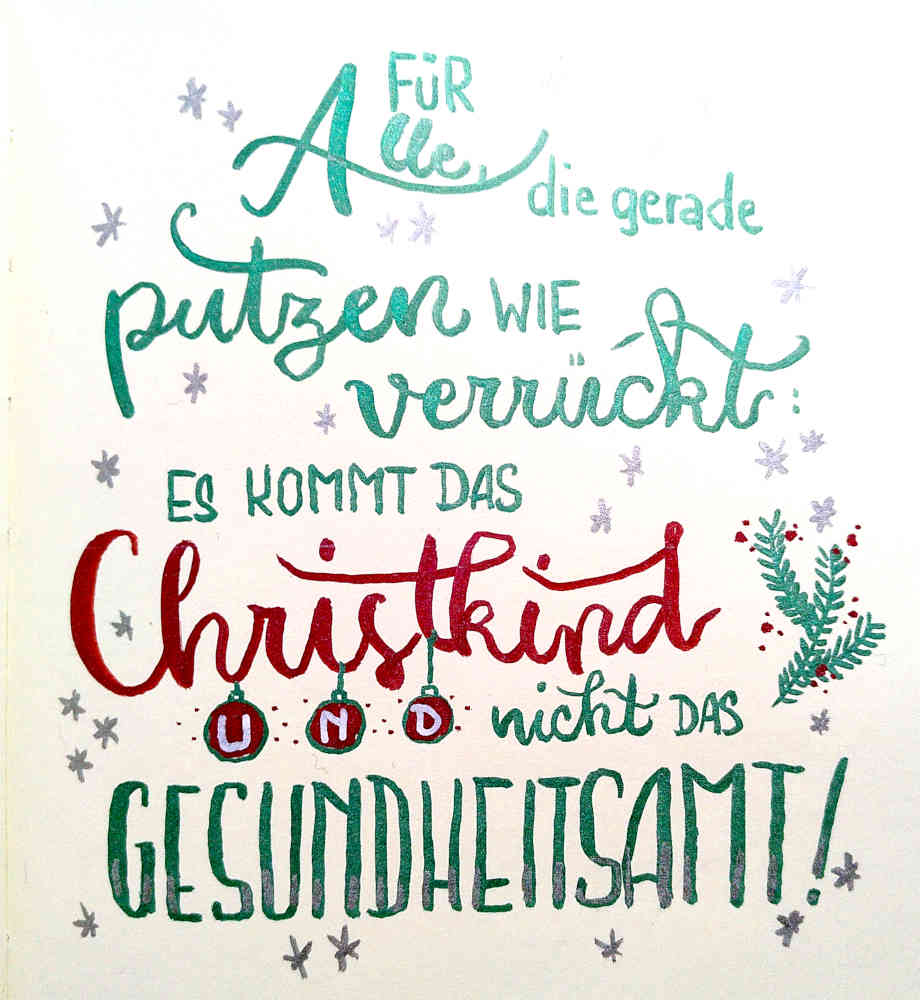 FÜR
Alle, die gerade
putzen WIE
verrückt:
ES KOMMT DAS
Christkind
UND nicht DAS
GESUNDHEITSAMT!